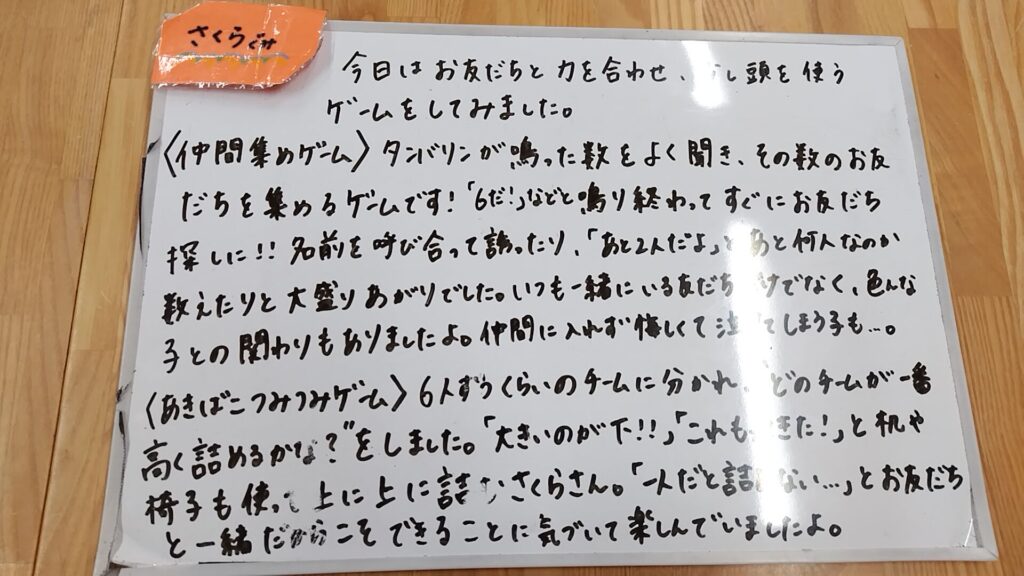 さくらぐみ
今日はお友だちと力を合わせ、少し頭を使う
ゲームをしてみました。
〈仲間集めゲーム〉タンバリンが鳴った数をよく聞き、その数のお友
だちを集めるゲームです!「6だ!」などと鳴り終わってすぐにお友だち
探しに!!名前を呼び合って誘ったり、「あと2人だよ」とあと何人なのか
数えたりと大盛りあがりでした。いつも一緒にいる友だちだけでなく、色んな
子との関わりもありましたよ。仲間に入れず悔しくて泣いてしまう子も…。
〈あきばこつみつみゲーム〉6人ずつくらいのチームに分かれ、"どのチームが一番
高く詰めるかな?"をしました。「大きいのが下!!」「これも きた!」と机や
椅子も使って上に上に詰むさくらさん。「一人だと詰 ない…」とお友だち
と一緒だからこそできることに気づいて楽しんでいましたよ。